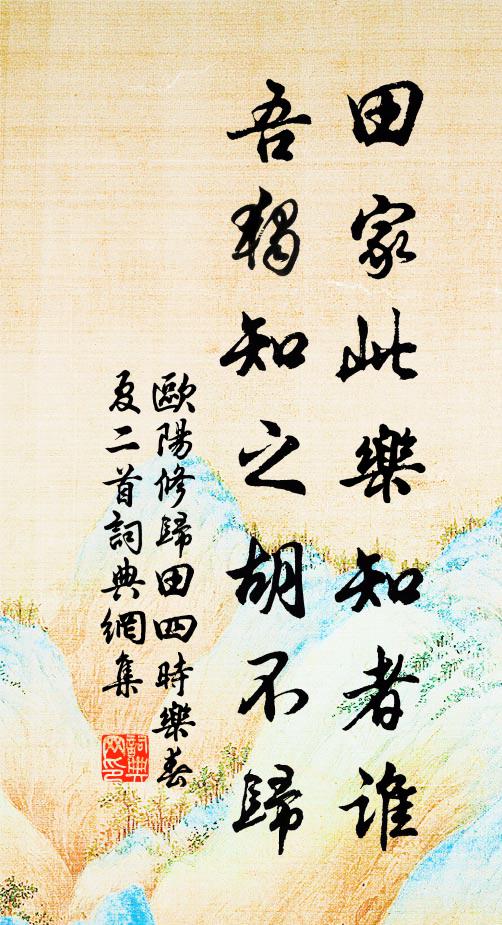 田家此樂知者誰
吾獨知之胡不歸
歐陽修歸田四時樂春
夏二首詞典網集
詞典
网印